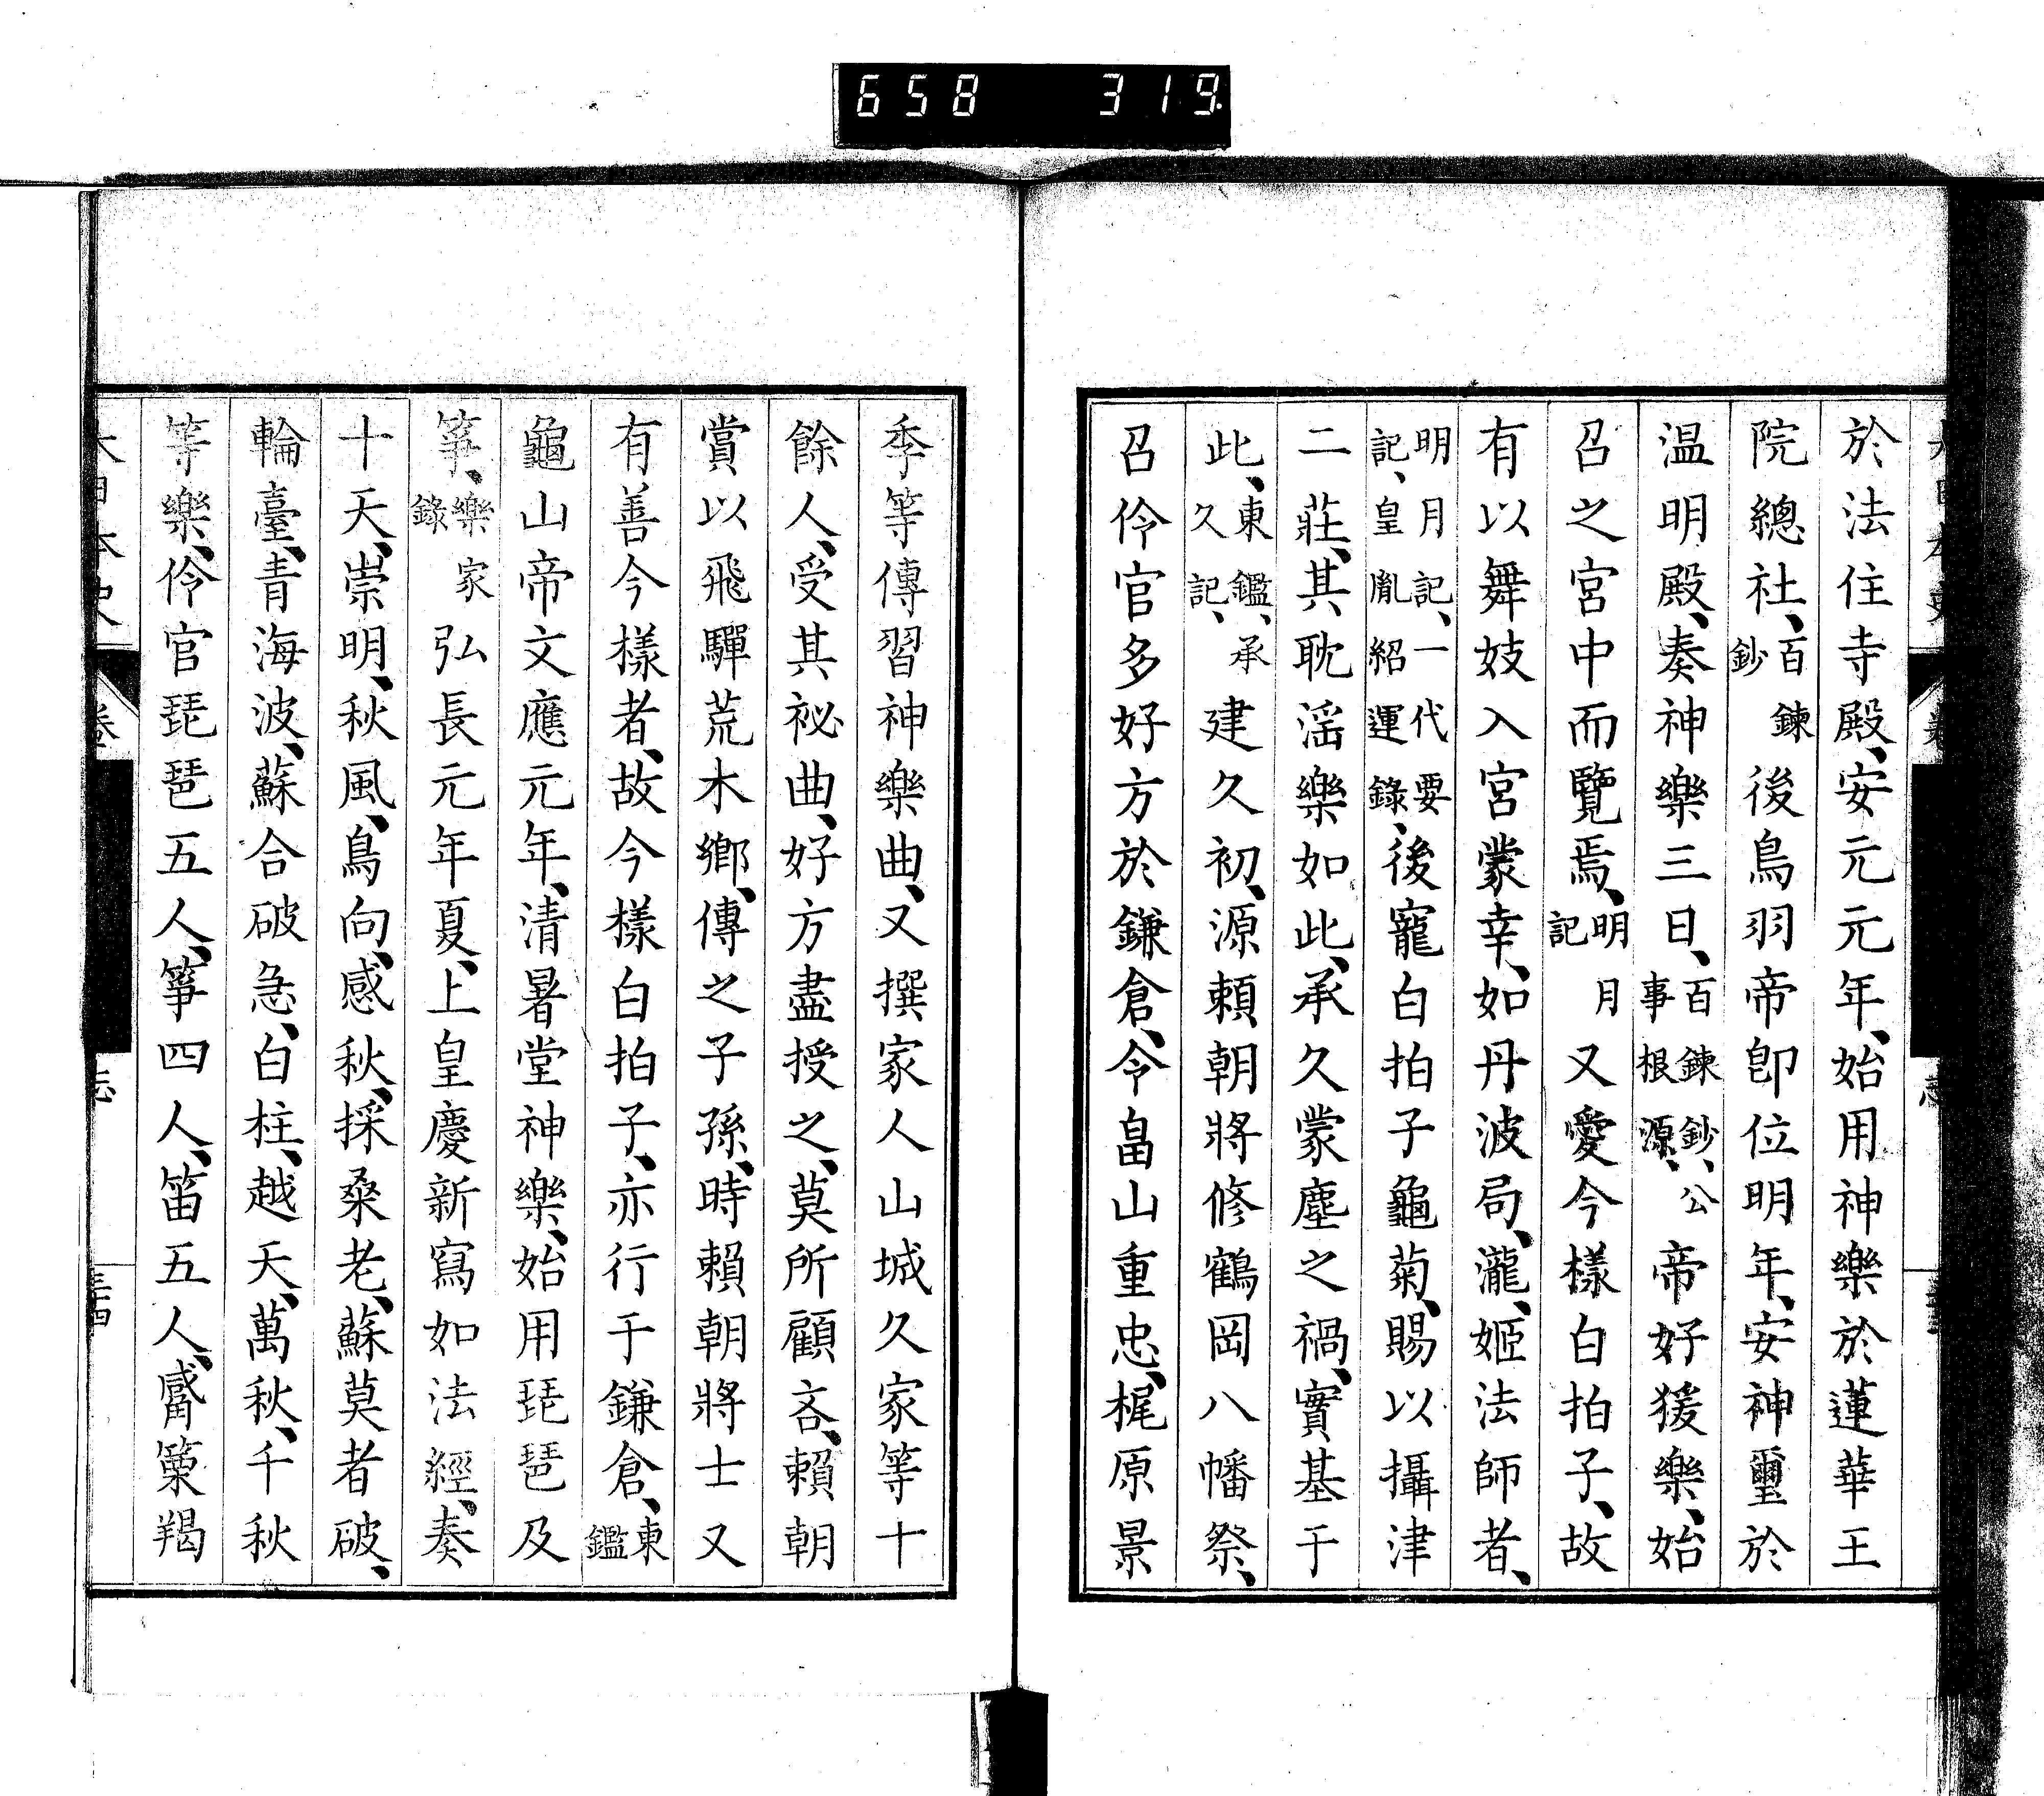 658 319
於法住寺殿、安元元年、始用神樂於蓮華王
院總社、百鍊鈔後鳥羽帝卽位明年、安神璽於
温明殿、奏神樂三日、百鍊鈔、公事根源、帝好猨樂、始
召之宮中而覽焉、明月記又愛今樣白拍子、故
有以舞妓入宮蒙幸、如丹波局、瀧、姬法師者、
明月記、一代要記、皇胤紹運錄、後寵白拍子龜菊、賜以攝津
二莊、其耽淫樂如此、承久蒙塵之禍、實基于
此、東鑑、承久記、建久初、源賴朝將修鶴岡八幡祭、
召伶官多好方於鎌倉、令畠山重忠、梶原景
大日本史 卷 志
季等傳習神樂曲、又撰家人山城久家等十
餘人、受其祕曲、好方盡授之、莫所顧吝、賴朝
賞以飛驒荒木鄉、傳之子孫、時賴朝將士又
有善今樣者、故今樣白拍子、亦行于鎌倉、東鑑
龜山帝文應元年、清暑堂神樂、始用琵琶及
箏、樂家錄弘長元年夏、上皇慶新寫如法經、奏
十天、崇明、秋風、鳥向、感秋、採桑老、蘇莫者破、
輪臺、青海波、蘇合破急、白柱、越天、萬秋、千秋
等樂、伶官琵琶五人、箏四人、笛五人、觱篥羯